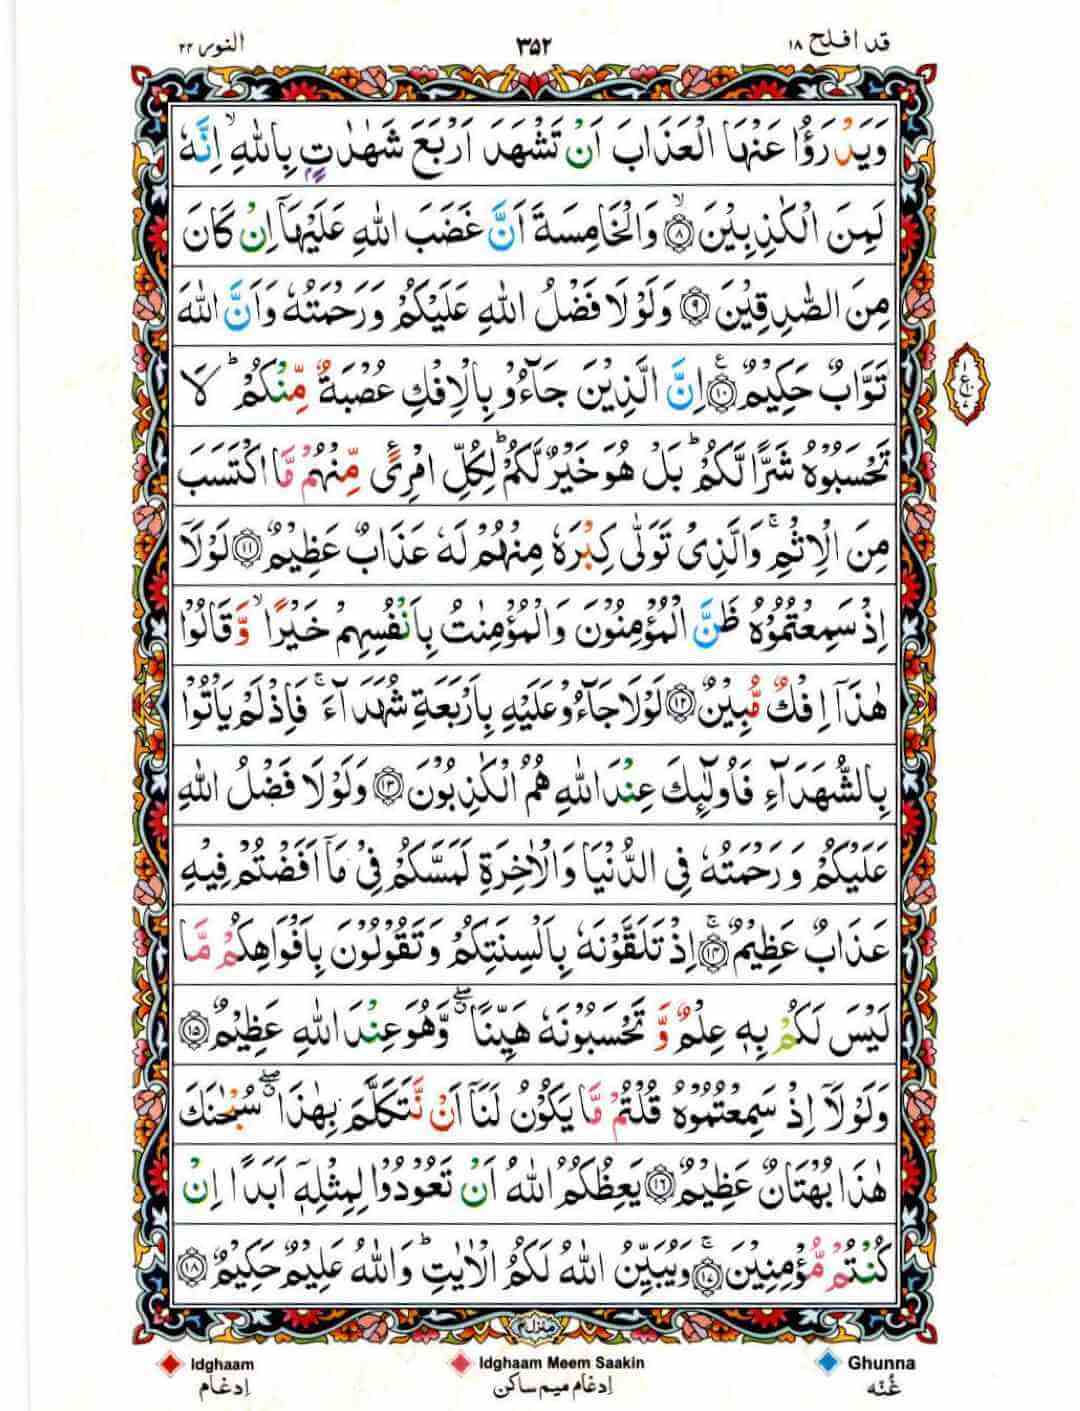 قد افلح ١٨
٣٥٢
النور ٢٤
وَيَدْرَؤُا عَنْهَا الْعَذَابَ اَنْ تَشْهَدَ اَرْبَعَ شَهٰدٰتٍۭ بِاللّٰهِۙ اِنَّهٗ
لَمِنَ الْكٰذِبِيْنَ ۙ‏﴿۸﴾ وَالْخَامِسَةَ اَنَّ غَضَبَ اللّٰهِ عَلَيْهَاۤ اِنْ كَانَ
مِنَ الصّٰدِقِيْنَ ﴿۹﴾ وَلَوْلَا فَضْلُ اللّٰهِ عَلَيْكُمْ وَرَحْمَتُهٗ وَاَنَّ اللّٰهَ
تَوَّابٌ حَكِيْمٌ ﴿۱۰﴾ اِنَّ الَّذِيْنَ جَآءُوْ بِالْاِفْكِ عُصْبَةٌ مِّنْكُمْ ؕ لَا
تَحْسَبُوْهُ شَرًّا لَّكُمْ ؕ بَلْ هُوَ خَيْرٌ لَّكُمْ ؕ لِكُلِّ امْرِیًٴ مِّنْهُمْ مَّا اكْتَسَبَ
مِنَ الْاِثْمِ ۚ وَالَّذِىْ تَوَلّٰى كِبْرَهٗ مِنْهُمْ لَهٗ عَذَابٌ عَظِيْمٌ ﴿۱۱﴾ لَوْلَاۤ
اِذْ سَمِعْتُمُوْهُ ظَنَّ الْمُؤْمِنُوْنَ وَالْمُؤْمِنٰتُ بِاَنْفُسِهِمْ خَيْرًا ۙ وَّ قَالُوْا
هٰذَاۤ اِفْكٌ مُّبِيْنٌ ﴿۱۲﴾ لَوْلَا جَآءُوْ عَلَيْهِ بِاَرْبَعَةِ شُهَدَآءَ ۚ فَاِذْ لَمْ يَاْتُوْا
بِالشُّهَدَآءِ فَاُولٰٓئِكَ عِنْدَ اللّٰهِ هُمُ الْكٰذِبُوْنَ ﴿۱۳﴾ وَلَوْلَا فَضْلُ اللّٰهِ
عَلَيْكُمْ وَرَحْمَتُهٗ فِى الدُّنْيَا وَالْاٰخِرَةِ لَمَسَّكُمْ فِىْ مَاۤ اَفَضْتُمْ فِيْهِ
عَذَابٌ عَظِيْمٌ ۚ‏﴿۱۴﴾ اِذْ تَلَقَّوْنَهٗ بِاَلْسِنَتِكُمْ وَتَقُوْلُوْنَ بِاَفْوَاهِكُمْ مَّا
لَيْسَ لَكُمْ بِهٖ عِلْمٌ وَّ تَحْسَبُوْنَهٗ هَيِّنًا ۖ وَّهُوَ عِنْدَ اللّٰهِ عَظِيْمٌ ﴿۱۵﴾
وَلَوْلَاۤ اِذْ سَمِعْتُمُوْهُ قُلْتُمْ مَّا يَكُوْنُ لَنَاۤ اَنْ نَّتَكَلَّمَ بِهٰذَا ۖ سُبْحٰنَكَ
هٰذَا بُهْتَانٌ عَظِيْمٌ ﴿۱۶﴾ يَعِظُكُمُ اللّٰهُ اَنْ تَعُوْدُوْا لِمِثْلِهٖۤ اَبَدًا اِنْ
كُنْتُمْ مُّؤْمِنِيْنَ ۚ‏﴿۱۷﴾ وَيُبَيِّنُ اللّٰهُ لَكُمُ الْاٰيٰتِ ؕ وَاللّٰهُ عَلِيْمٌ حَكِيْمٌ ﴿۱۸﴾
منزل ۴
Idghaam
ادغام
Idghaam Meem Saakin
ادغام میم ساکن
Ghunna
غُنّه